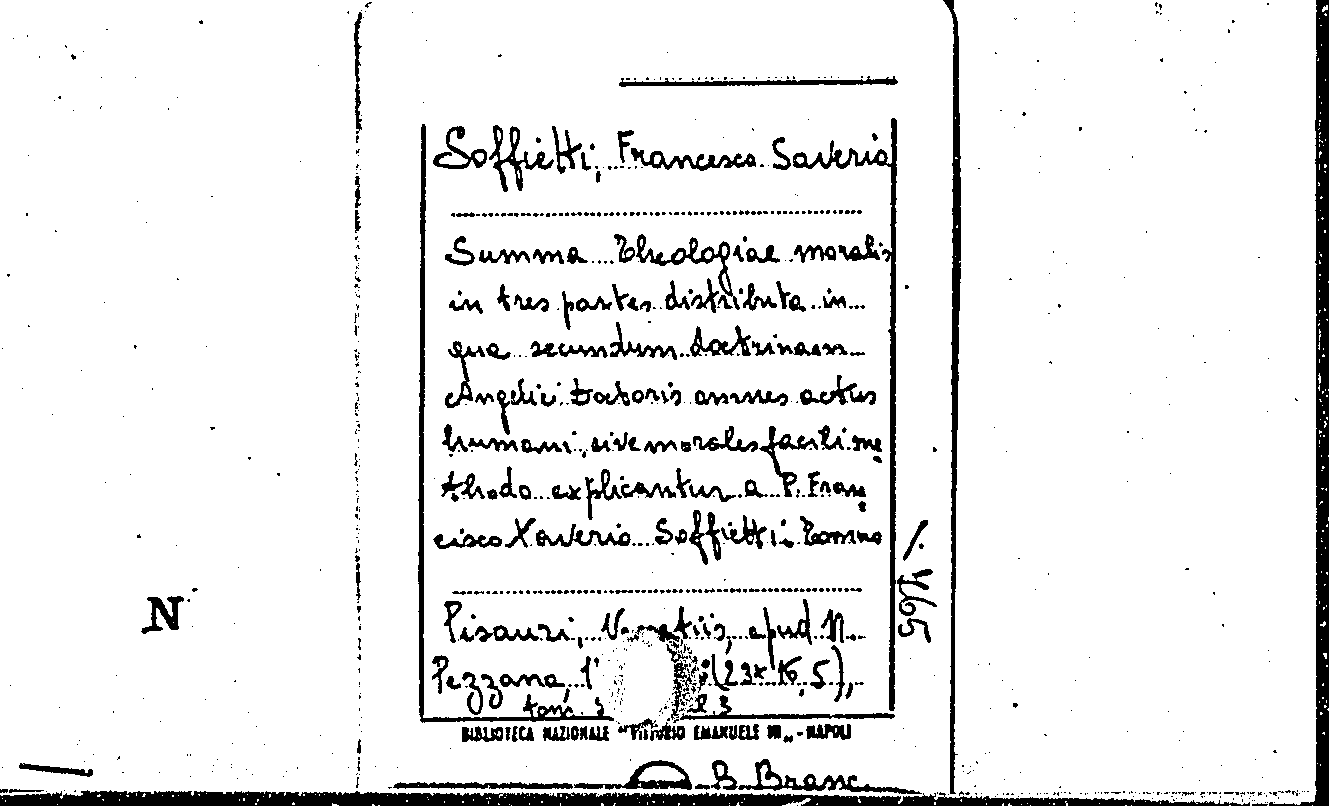 Soffietti, Francesco Saverio
Summa Theologiae moralis
in tres partes distributa in
qua secundum doctrinam
Angelici Doctoris omnes actus
humani, sive morales facili me
thodo explicantur a P. Fran
cisco Xaverio Soffietti. Tomus
Pisauri, Venetiis, apud N.
Pezzana, (23x16,5),
tom.
BIBLIOTECA NAZIONALE "VITTORIO EMANUELE III„ - NAPOLI
B. Branc.
N